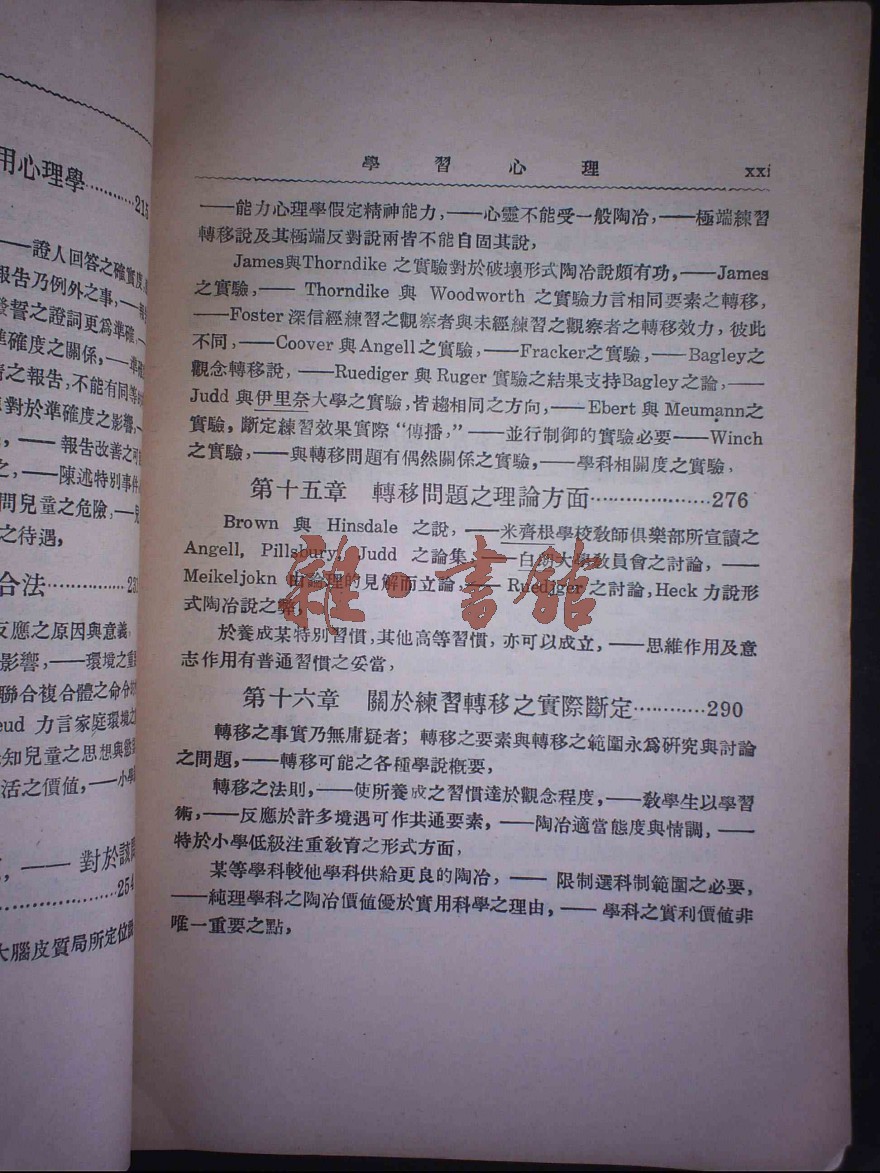 用心理學…………215
——證人回答之確實度,
報告乃例外之事,——
發誓之證詞更爲準確,
準確度之關係,——
之報告,不能有同等
對於準確度之影響,
——報告改善之可
之,——陳述特別事件
問兒童之危險,——
之待遇,
合法…………23
反應之原因與意義,
影響,——環境之重
聯合複合體之命令
eud 力言家庭環境之
知兒童之思想與
活之價値,——小學
,——對於該
…………254
大腦皮質局所定位
學習心理 xxi
——能力心理學假定精神能力,——心靈不能受一般陶冶,——極端練習
轉移說及其極端反對說兩皆不能自固其說,
James與Thorndike 之實驗對於破壞形式陶冶說頗有功,——James
之實驗,——Thorndike 與 Woodworth 之實驗力言相同要素之轉移,
——Foster 深信經練習之觀察者與未經練習之觀察者之轉移效力,彼此
不同,——Coover 與Angell之實驗,——Fracker之實驗,——Bagley之
觀念轉移說,——Ruediger 與 Ruger 實驗之結果支持Bagley之論,——
Judd 與伊里奈大學之實驗,皆趨相同之方向,——Ebert 與 Meumann之
實驗,斷定練習效果實際“傳播,”——並行制御的實驗必要——Winch
之實驗,——與轉移問題有偶然關係之實驗,——學科相關度之實驗,
第十五章 轉移問題之理論方面…………………276
Brown 與 Hinsdale 之說,——米齊根學校敎師俱樂部所宣讀之
Angell, Pillsbury, Judd 之論集,——白朗大學敎員會之討論,——
Meikeljokn 由論理的見解而立論,——Ruediger 之討論,Heck 力說形
式陶冶說之弊,
於養成某特別習慣,其他高等習慣,亦可以成立,——思維作用及意
志作用有普通習慣之妥當,
第十六章 關於練習轉移之實際斷定…………290
轉移之事實乃無庸疑者;轉移之要素與轉移之範圍永爲硏究與討論
之問題,——轉移可能之各種學說槪要,
轉移之法則,——使所養成之習慣達於觀念程度,——敎學生以學習
術,——反應於許多境遇可作共通要素,——陶冶適當態度與情調,——
特於小學低級注重敎育之形式方面,
某等學科較他學科供給更良的陶冶,——限制選科制範圍之必要,
——純理學科之陶冶價値優於實用科學之理由,——學科之實利價値非
唯一重要之點,
雜·書館